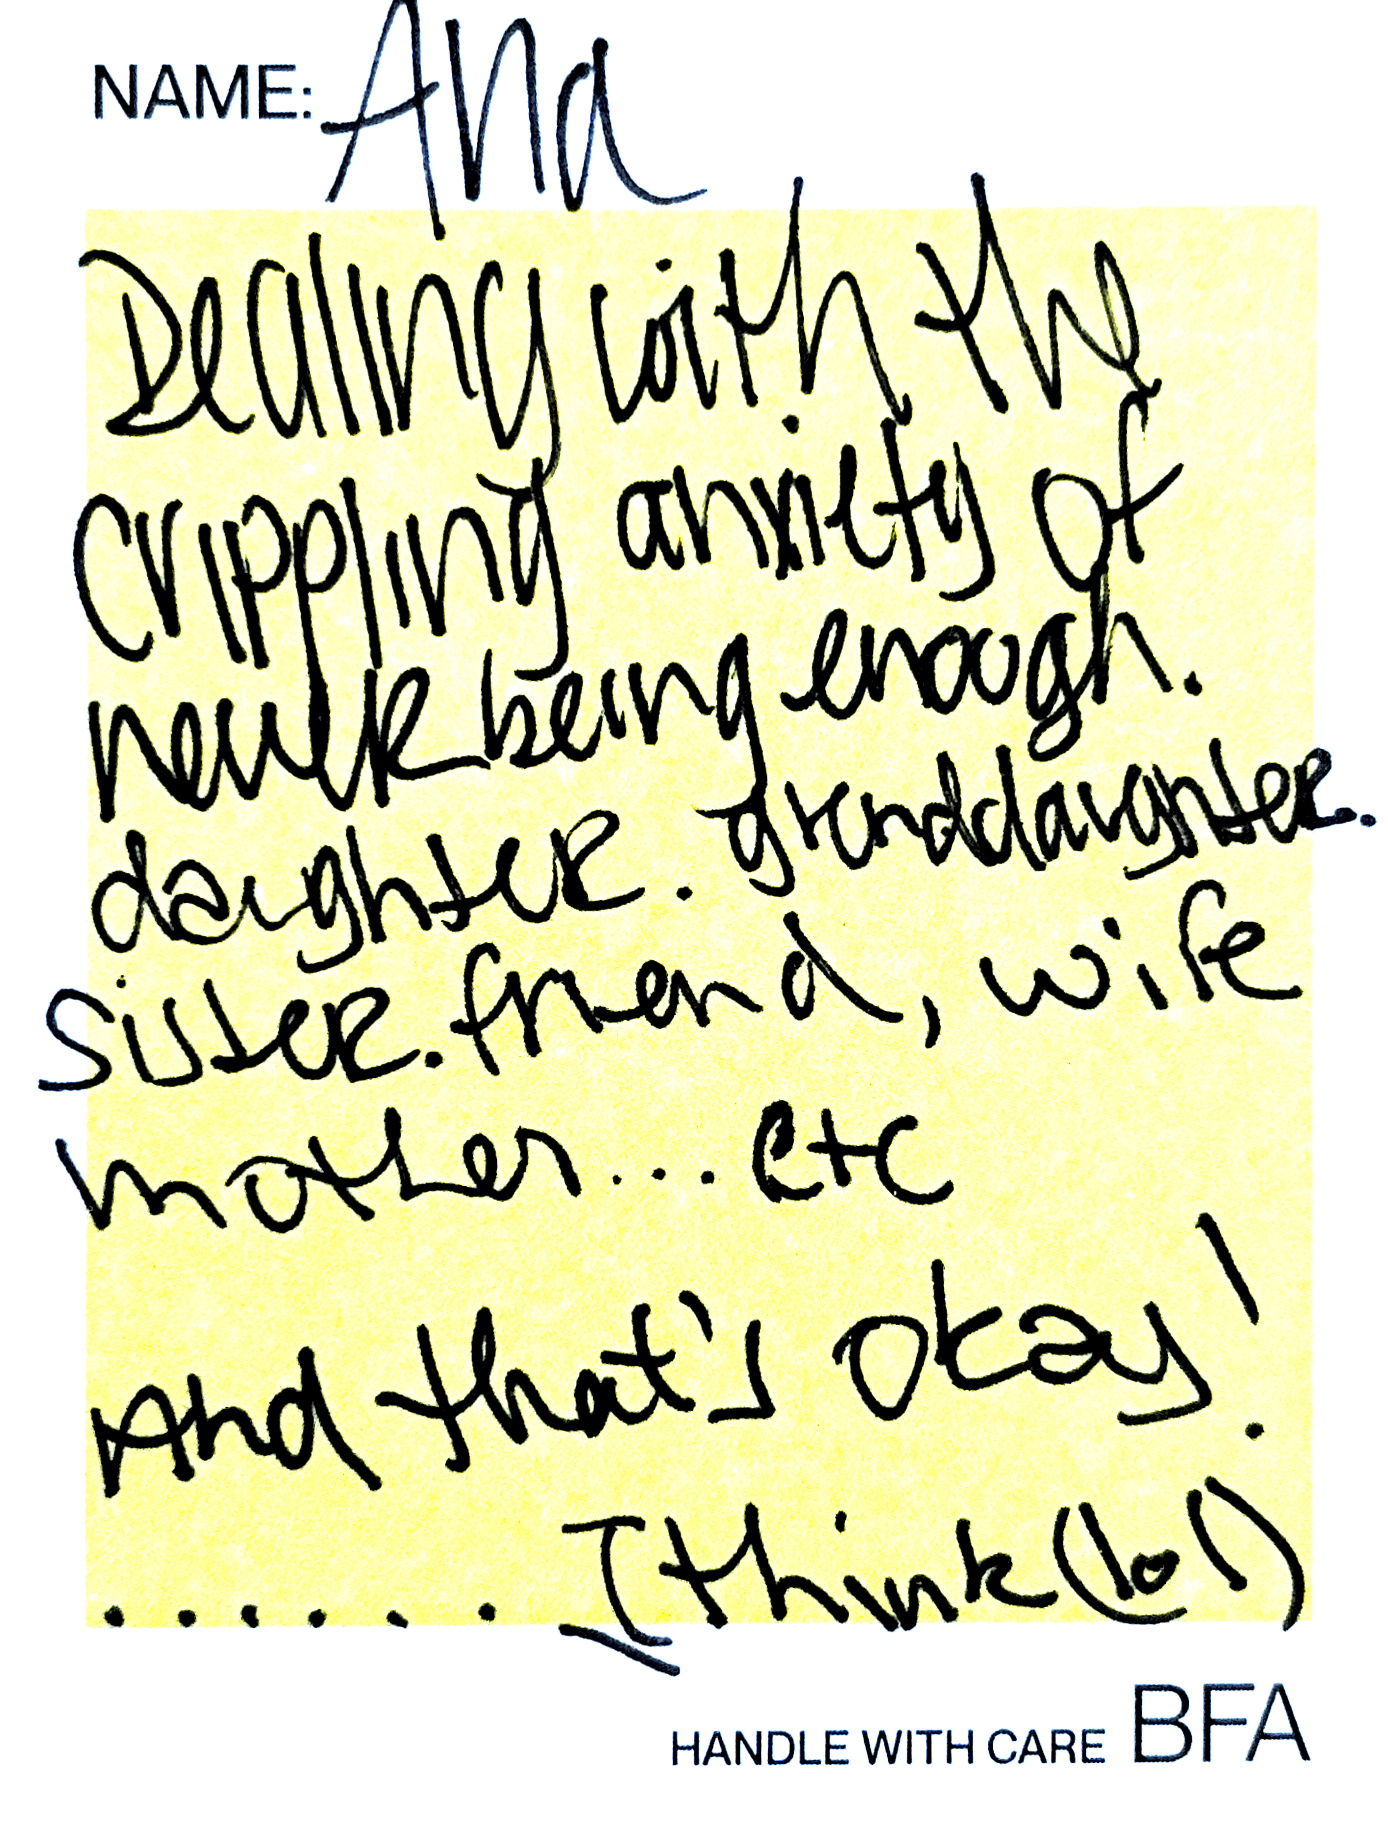 NAME: Ana
Dealing with the
crippling anxiety of
never being enough.
daughter. granddaughter.
sister. friend, wife
mother... etc
And that's okay!
...... I think (lol)
HANDLE WITH CARE BFA